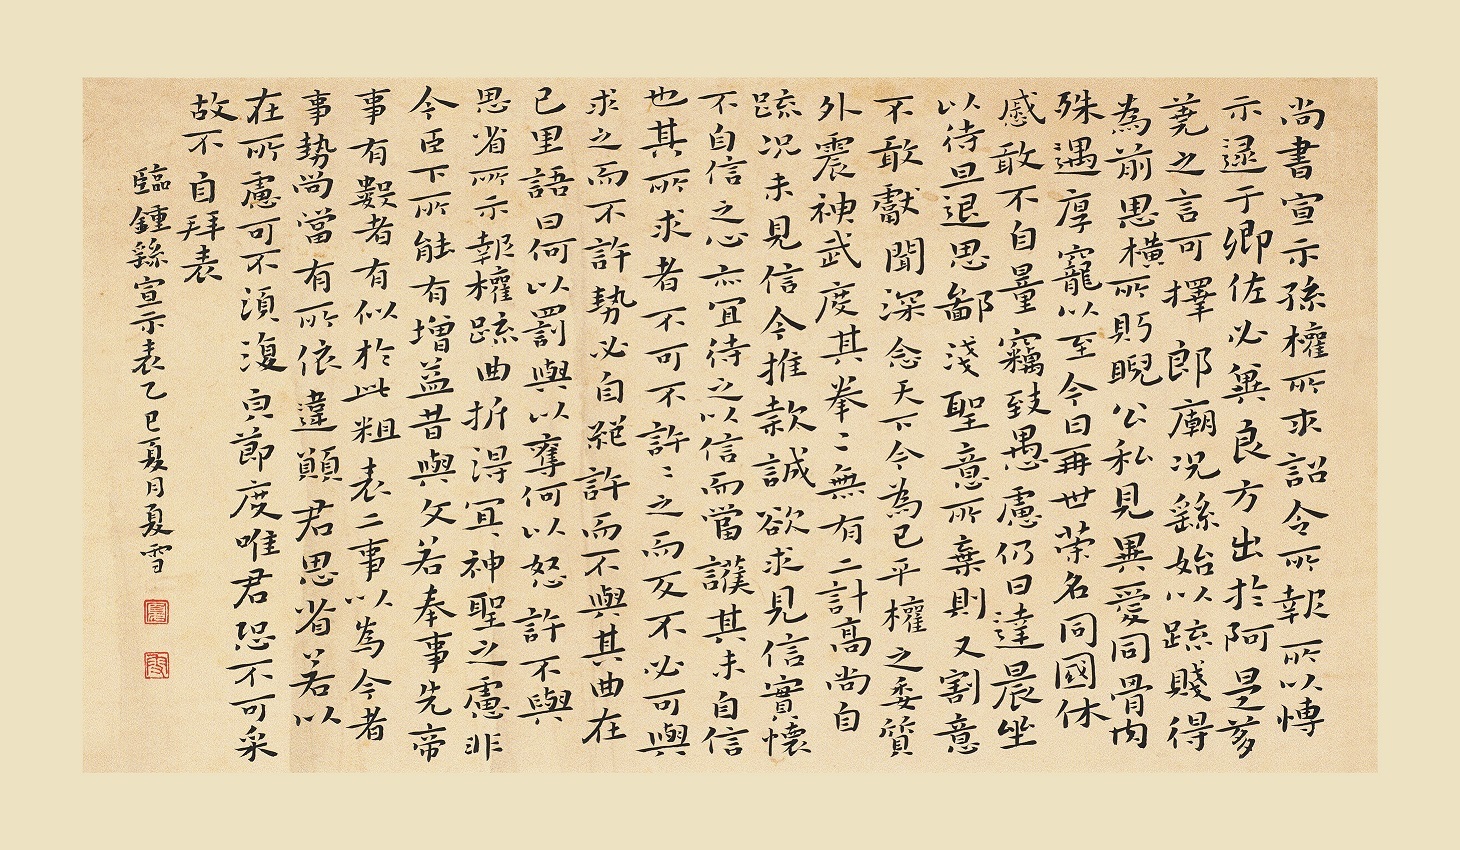 尚書宣示孫權所求詔令所報所以博
示逯于卿佐必兾良方出於阿是芻
蕘之言可擇郎廟況繇始以疏賤得
為前恩橫所眄睨公私見異愛同骨肉
殊遇厚寵以至今日再世榮名同國休
慼敢不自量竊致愚慮仍日達晨坐
以待旦退思鄙淺聖意所棄則又割意
不敢獻聞深念天下今為已平權之委質
外震神武度其拳〻無有二計高尚自
疏況未見信今推款誠欲求見信實懷
不自信之心亦宜待之以信而當護其未自信
也其所求者不可不許〻之而反不必可與
求之而不許勢必自絕許而不與其曲在
已里語曰何以罰與以奪何以怒許不與
思省所示報權疏曲折得宜神聖之慮非
今臣下所能有增益昔與文若奉事先帝
事有數者有似於此粗表二事以為今者
事勢尚當有所依違願君思省若以
在所慮可不須復皃節度唯君恐不可采
故不自拜表
臨鍾繇宣示表乙巳夏月夏雪